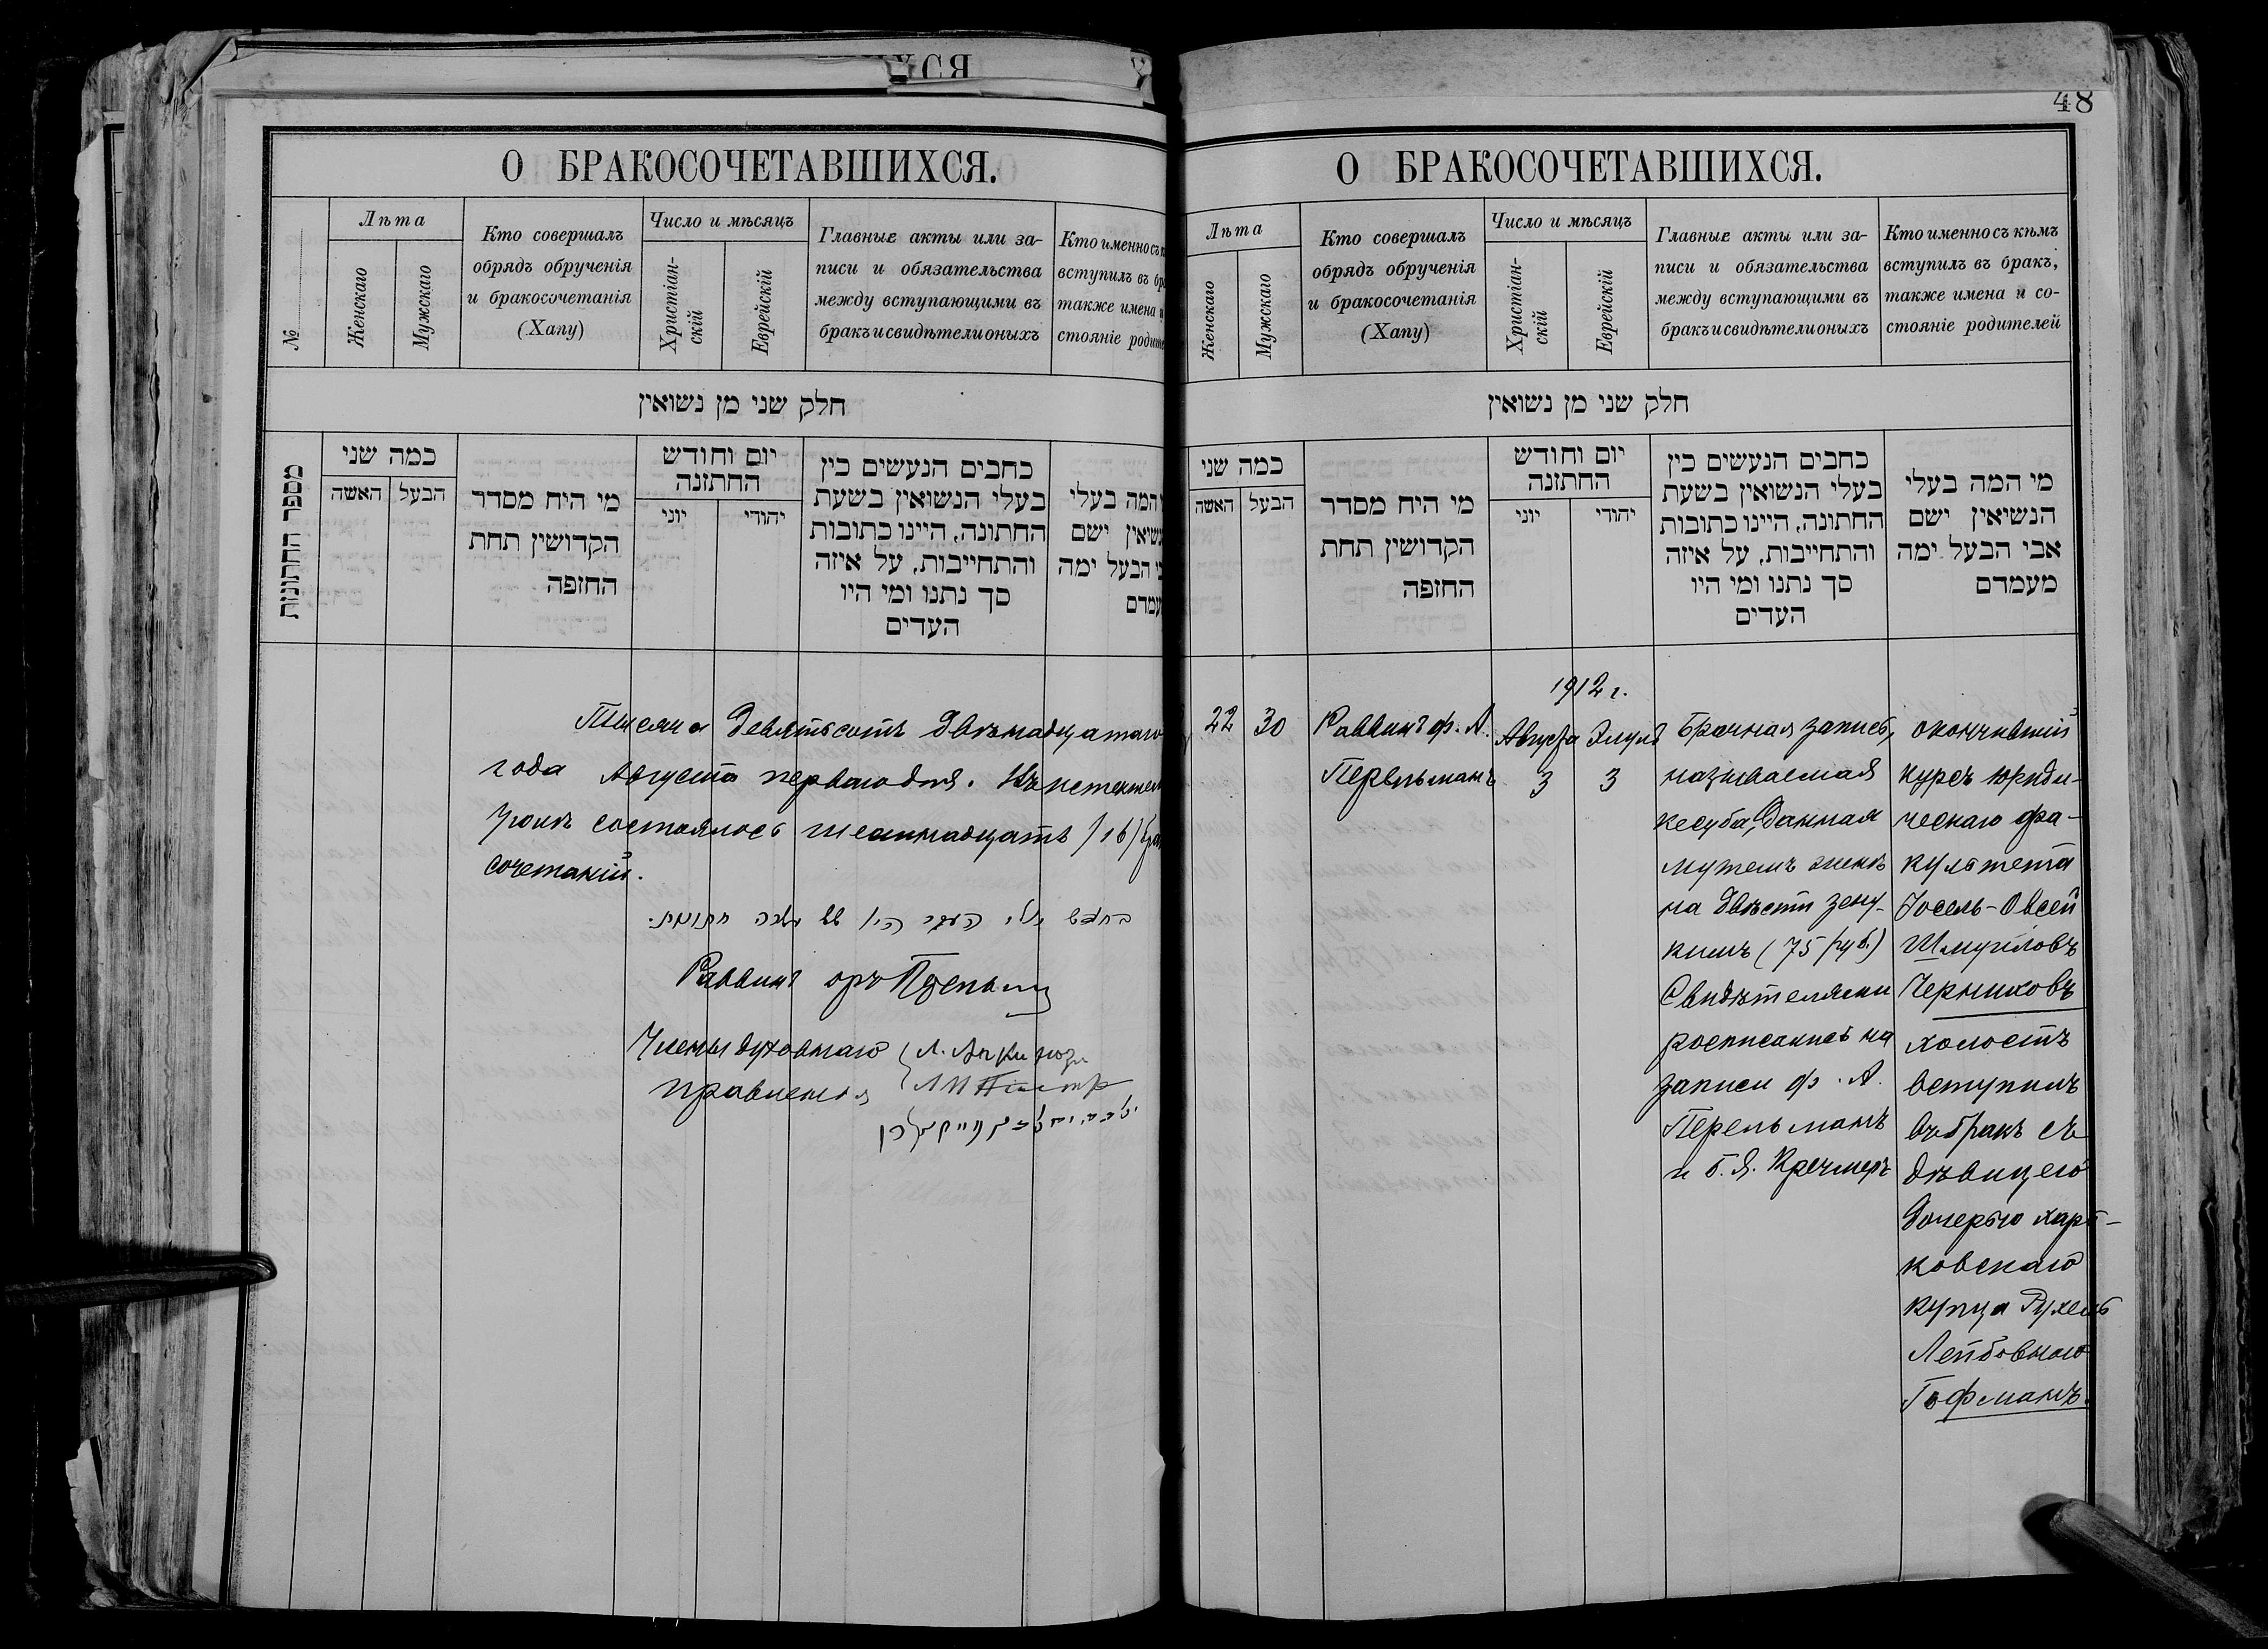 О БРАКОСОЧЕТАВШИХСЯ.
№
Лѣта
Женскаго
Мужскаго
Кто совершалъ
обрядъ обрученія
и бракосочетанія
(Хапу)
Число и мѣсяцъ
Христіан-
скій
Еврейскій
Главные акты или за-
писи и обязательства
между вступающими въ
бракъ и свидѣтели оныхъ
Кто именно съ
вступилъ въ
также имена
стояніе
חלק שני מן נשואין
מספר החתונות
כמה שני
האשה
הבעל
מי היח מסדר
הקדושין תחת
החזפה
יום וחודש
החתזנה
יוני
יהודי
כחבים הנעשים כין
בעלי הנשואין בשעת
החתונה, היינו כתובות
והתחייבות, על איזה
סך נתנו ומי היו
העדים
המה בעלי
ישם
הבעל ימה
Тысяча девятьсотъ двѣнадцатаго
года Августа перваго дня. Въ
состоялось шестнадцать (16)
сочетаній.
Раввинъ
Члены духовнаго
правленія
48
О БРАКОСОЧЕТАВШИХСЯ.
Лѣта
Женскаго
Мужскаго
Кто совершалъ
обрядъ обрученія
и бракосочетанія
(Хапу)
Число и мѣсяцъ
Христіан-
скій
Еврейскій
Главные акты или за-
писи и обязательства
между вступающими въ
бракъ и свидѣтели оныхъ
Кто именно съ кѣмъ
вступилъ въ бракъ,
также имена и со-
стояніе родителей
חלק שני מן נשואין
כמה שני
האשה
הבעל
מי היח מסדר
הקדושין תחת
החזפה
יום וחודש
החתזנה
יוני
יהודי
כחבים הנעשים כין
בעלי הנשואין בשעת
החתונה, היינו כתובות
והתחייבות, על איזה
סך נתנו ומי היו
העדים
מי המה בעלי
הנשיאין ישם
אבי הבעל ימה
מעמדם
22
30
Раввинъ ф. А.
Перельманъ
1912 г.
Августа
3
Элулъ
3
Брачная запись,
называемая
кесуба, данная
мужемъ женѣ
на двѣсти зеку-
кимъ (75 руб.)
Свидѣтелями
росписались на
записи ф. А.
Перельманъ
и Б. Я. Кречмеръ
окончившій
курсъ юриди-
ческаго фа-
культета
Іосель-Овсей
Шмуйловъ
Черниховъ
холостъ
вступилъ
въ бракъ съ
дѣвицею
дочерью харь-
ковскаго
купца Рухель
Лейбовною
Гофманъ.